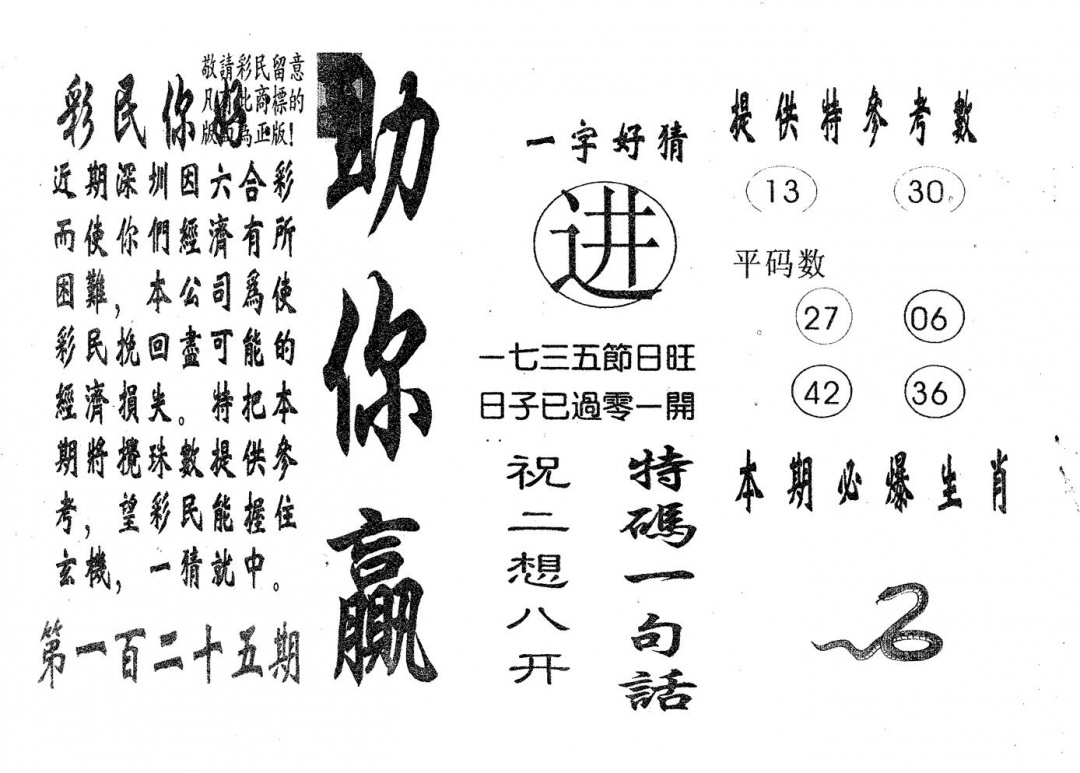 敬請彩民留意
凡有此商標的
版面為正版!
彩民你好
近期深圳因六合彩
而使你們經濟有所
困難,本公司爲使
彩民挽回盡可能的
經濟損失。特把本
期將攪珠數提供參
考,望彩民能握住
玄機,一猜就中。
第一百二十五期
助你贏
一字好猜
进
一七三五節日旺
日子已過零一開
特碼一句話
祝二想八开
提供特參考數
13 30
平码数
27 06
42 36
本期必爆生肖